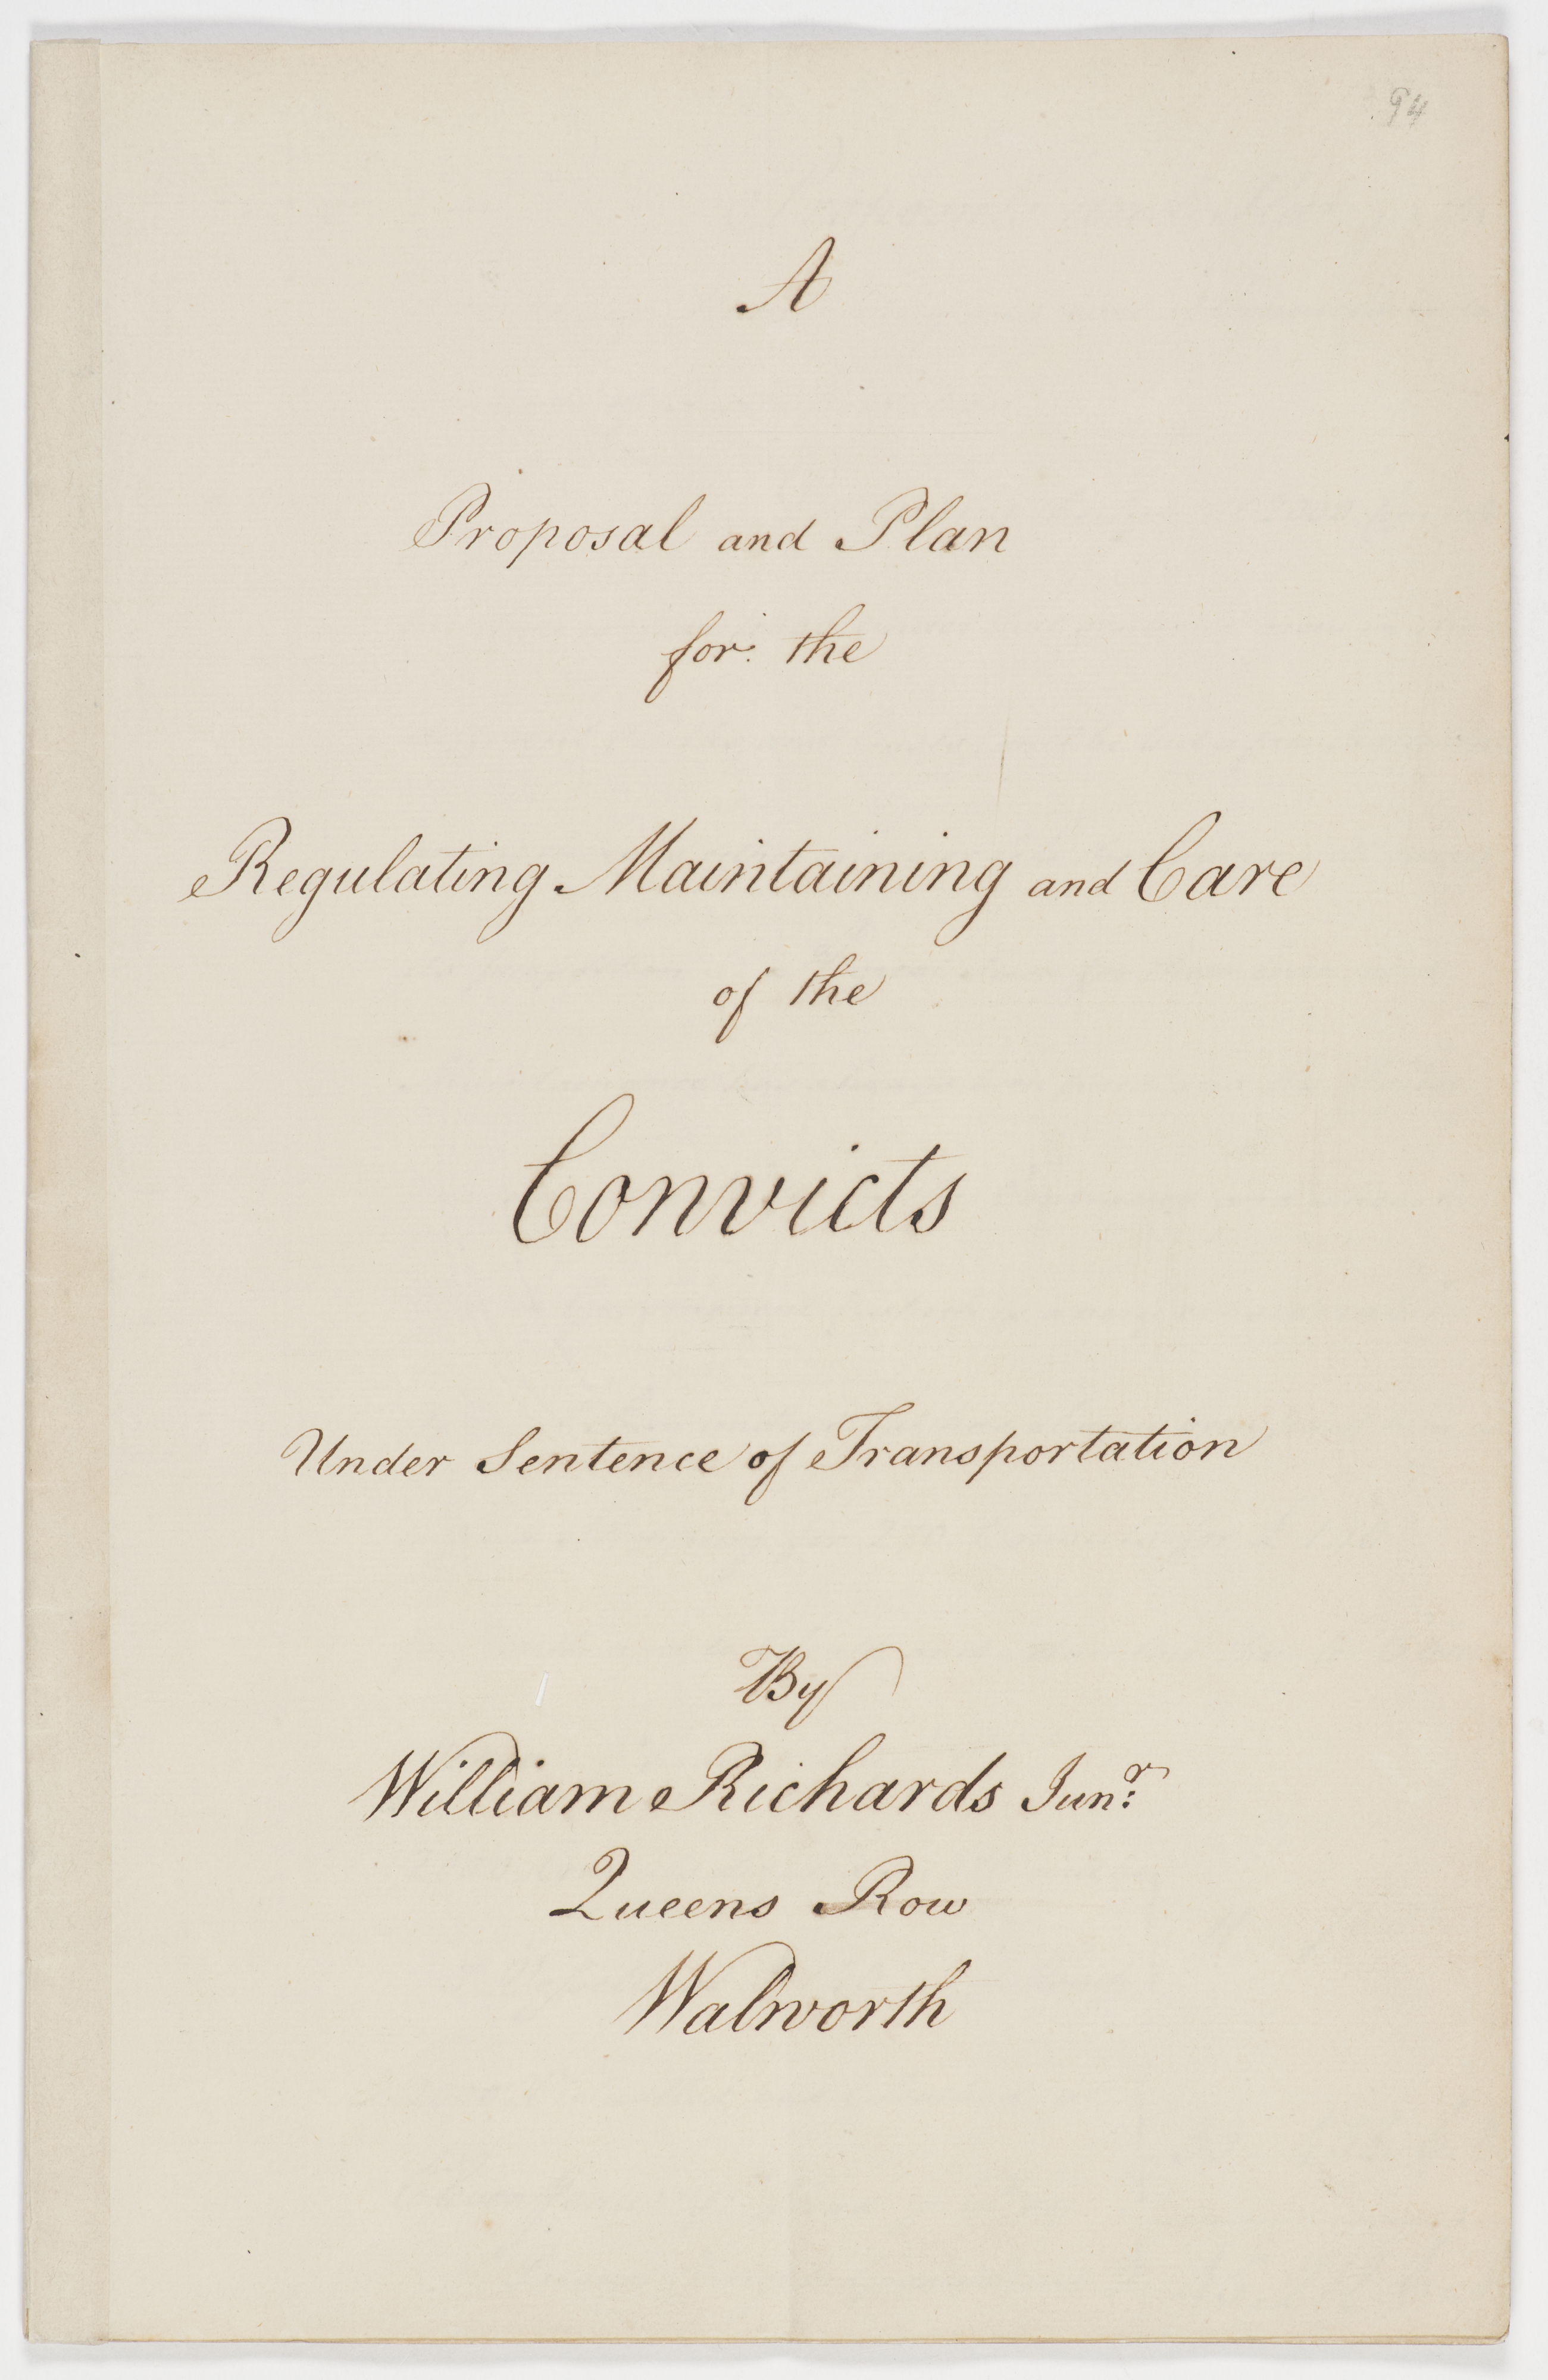 94
A
Proposal and Plan
for the
Regulating Maintaining and Care
of the
Convicts
Under Sentence of Transportation
By
William Richards Junr:
Queens Row
Walworth